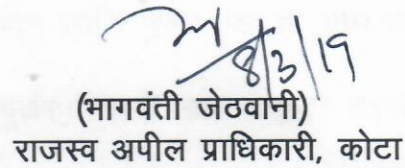 8/3/19
(भागवंती जेठवानी)
राजस्व अपील प्राधिकारी, कोटा